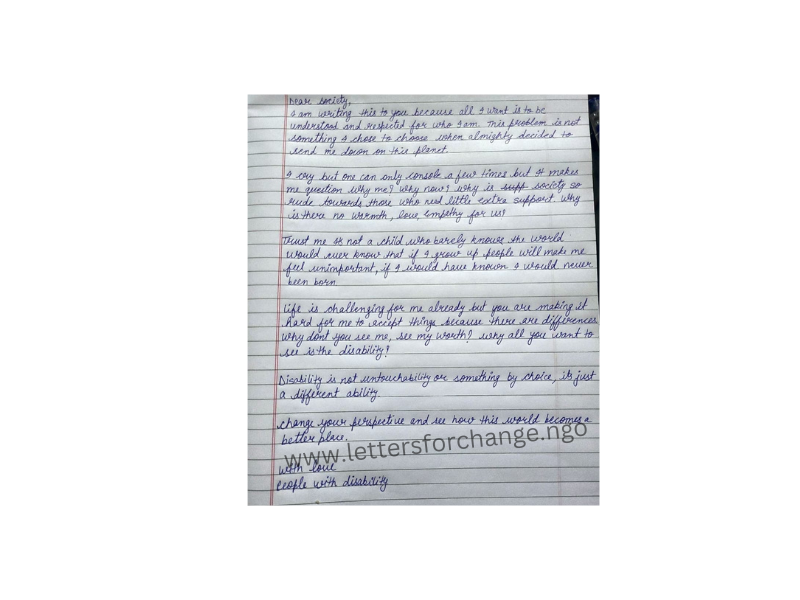 Dear society,
I am writing this to you because all I want is to be
understood and respected for who I am. This problem is not
something I chose to choose when almighty decided to
send me down on this planet.
I cry but one can only console a few times but it makes
me question why me? why now? why is supp society so
rude towards those who need little extra support. Why
is there no warmth, love, empathy for us?
Trust me or not a child who barely knows the world
would ever know that if I grow up people will make me
feel unimportant, if I would have known I would never
been born.
Life is challenging for me already but you are making it
hard for me to accept things because there are differences.
Why dont you see me, see my worth? why all you want to
see is the disability?
Disability is not untouchability or something by choice, it's just
a different ability.
change your perspective and see how this world becomes a
better place.
www.lettersforchange.ngo
with love
People with disability